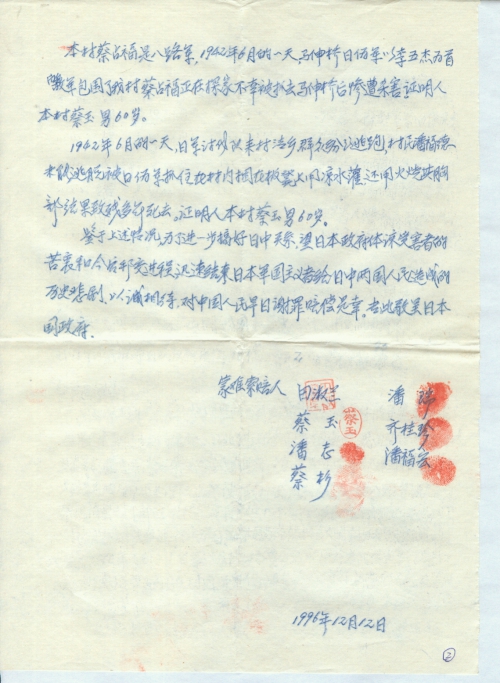 本村蔡占福是八路军,1942年6月的一天马伸桥日伪军以李五杰为首
军包围了我村蔡占福正在探家不幸被抓去马伸桥后惨遭杀害证明人
本村蔡玉男60岁。
1942年6月的一天,日军讨伐队来村清乡群众纷纷逃跑,村民潘福德
未能逃脱被日伪军抓住在村内捆在板凳上用凉水灌,还用火烧其胸
部结果致残多年死去,证明人本村蔡玉男60岁。
鉴于上述情况,为了进一步搞好日中关系,望日本政府体谅受害者的
苦衷和今后邦交进程,迅速结束日本军国主义者给日中两国人民造成的
历史悲剧,以诚相待,对中国人民早日谢罪赔偿是幸,专此敬呈日本
国政府.
蒙难索赔人 田淑兰 潘
蔡玉 齐桂珍
蔡玉
潘志 潘福宏
蔡杉
1996年12月12日
2